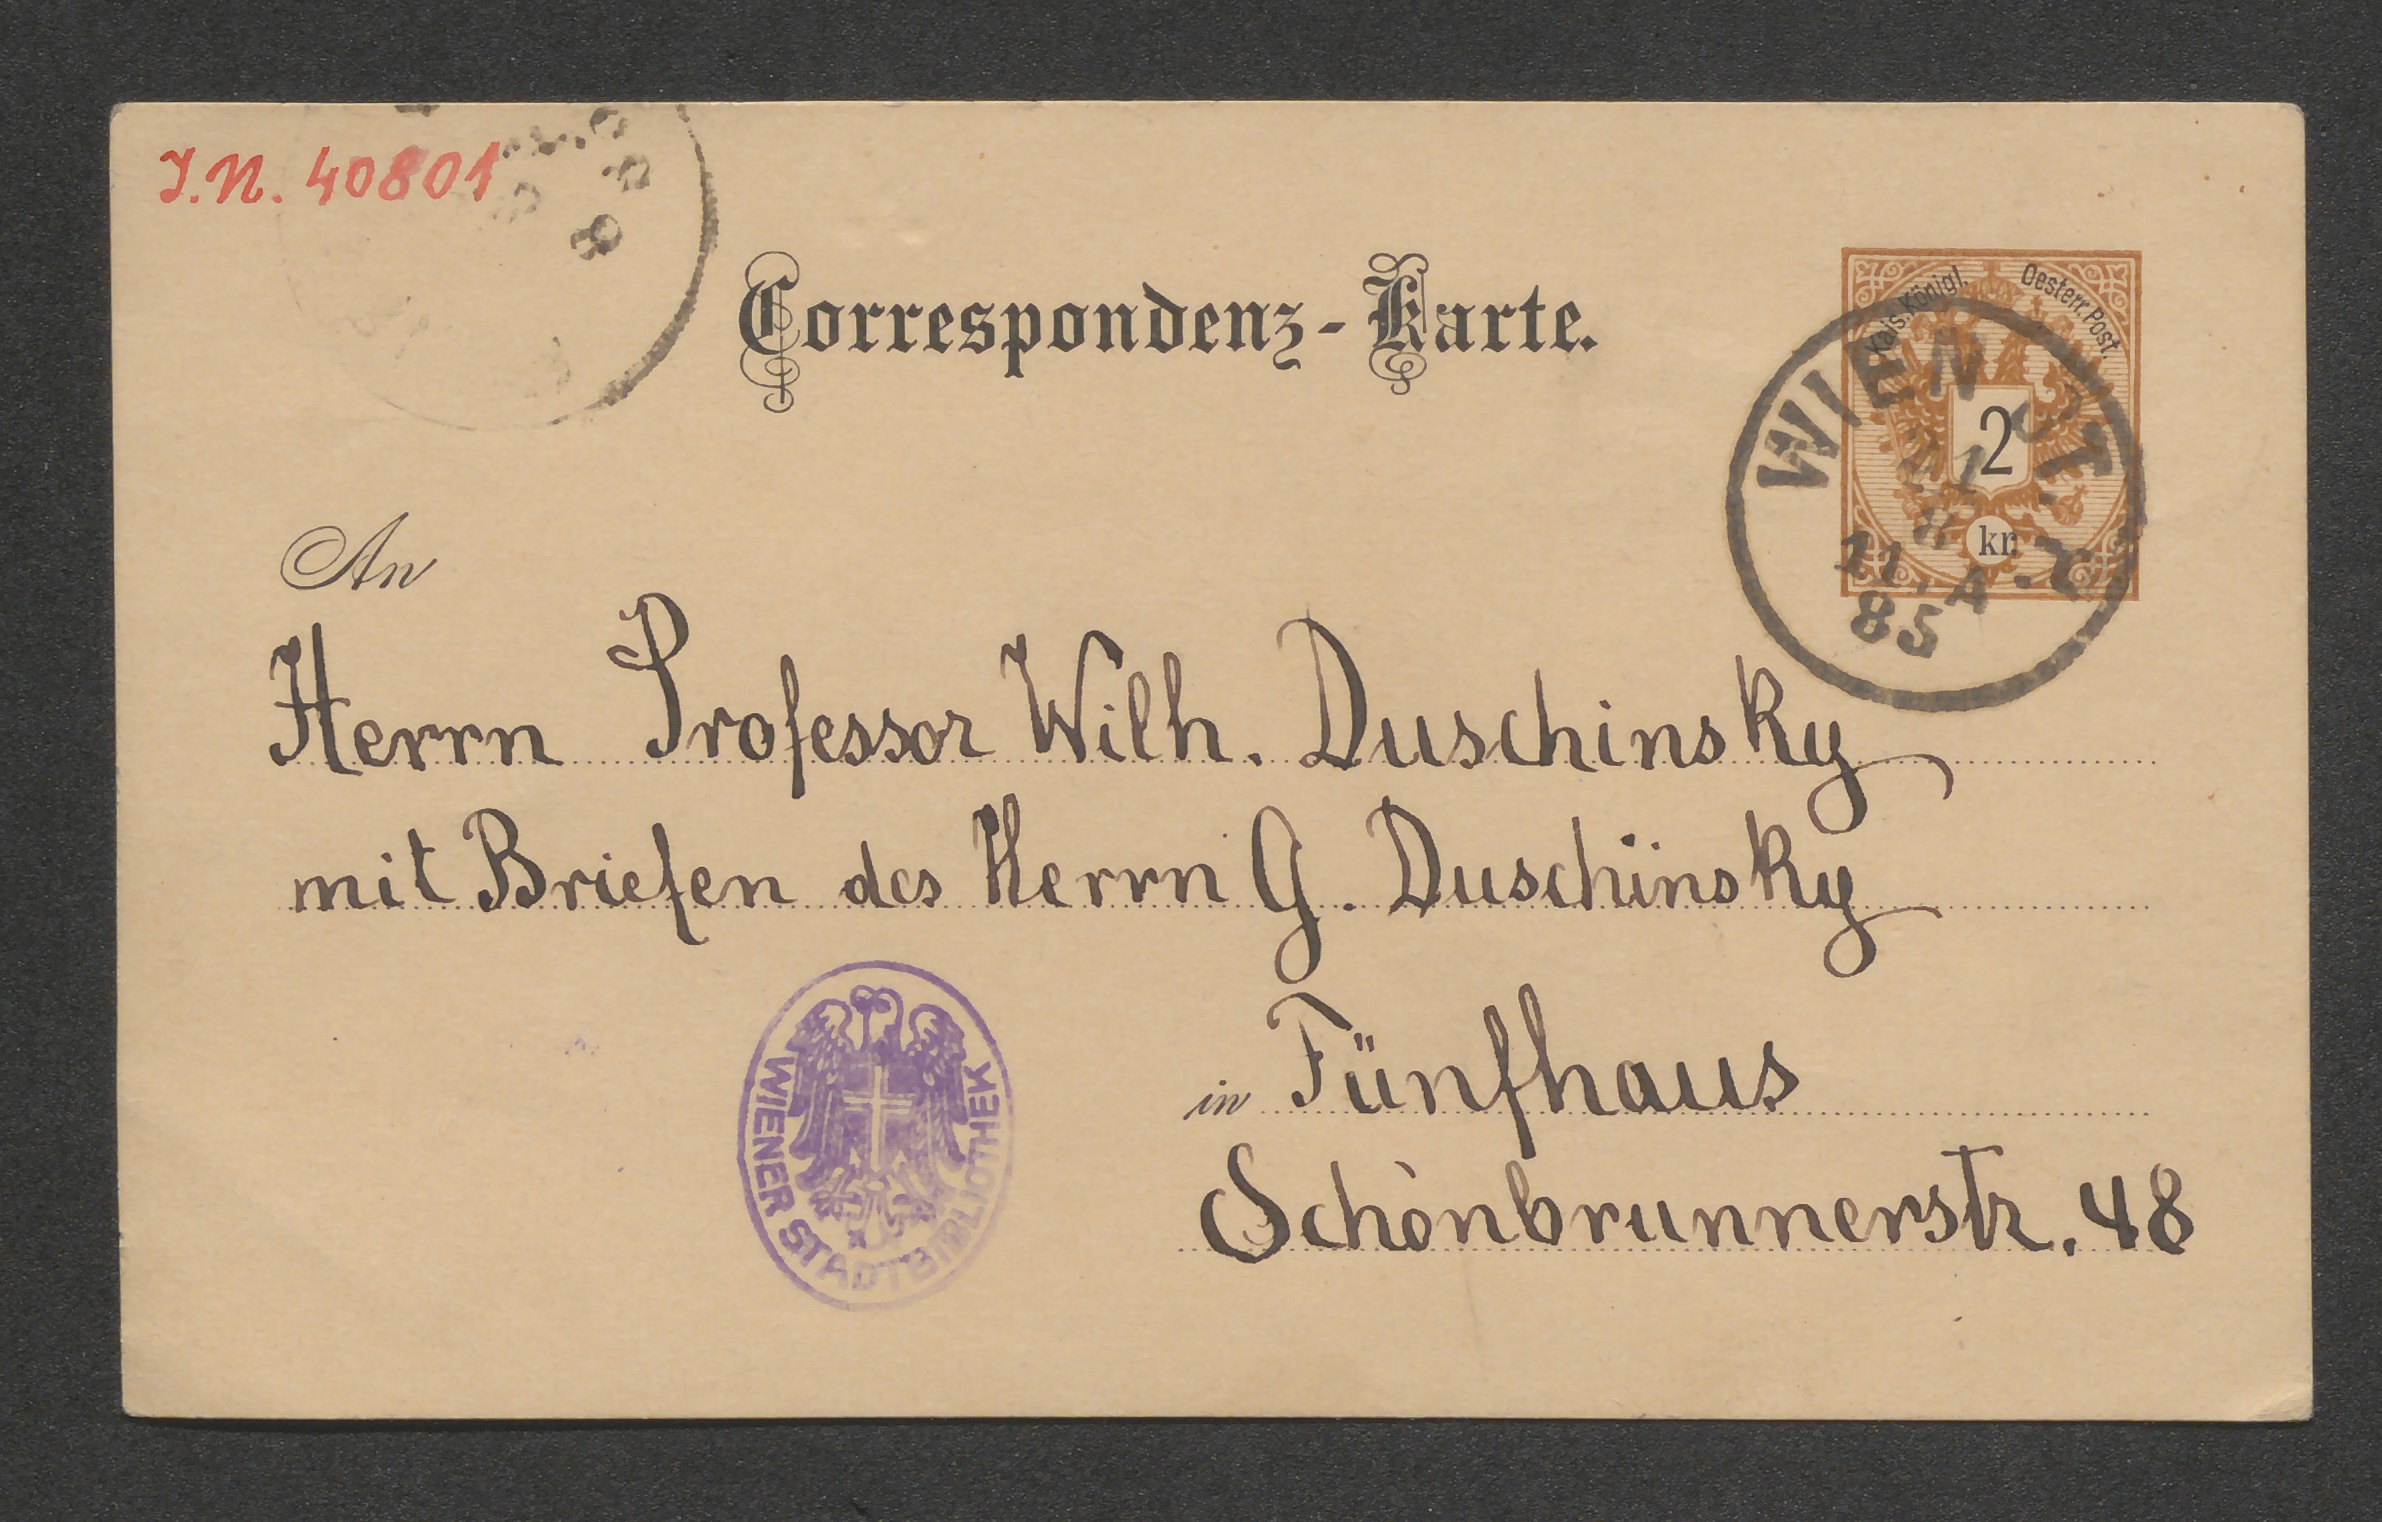 J.N. 40801
Correspondenz-Karte.
Kais. Königl. Oesterr. Post.
2
kr
WIEN
11. A
85
An
Herrn Professor Wilh. Duschinsky
mit Briefen des Herrn G. Duschinsky
in Fünfhaus
Schönbrunnerstr. 48
WIENER STADTBIBLIOTHEK